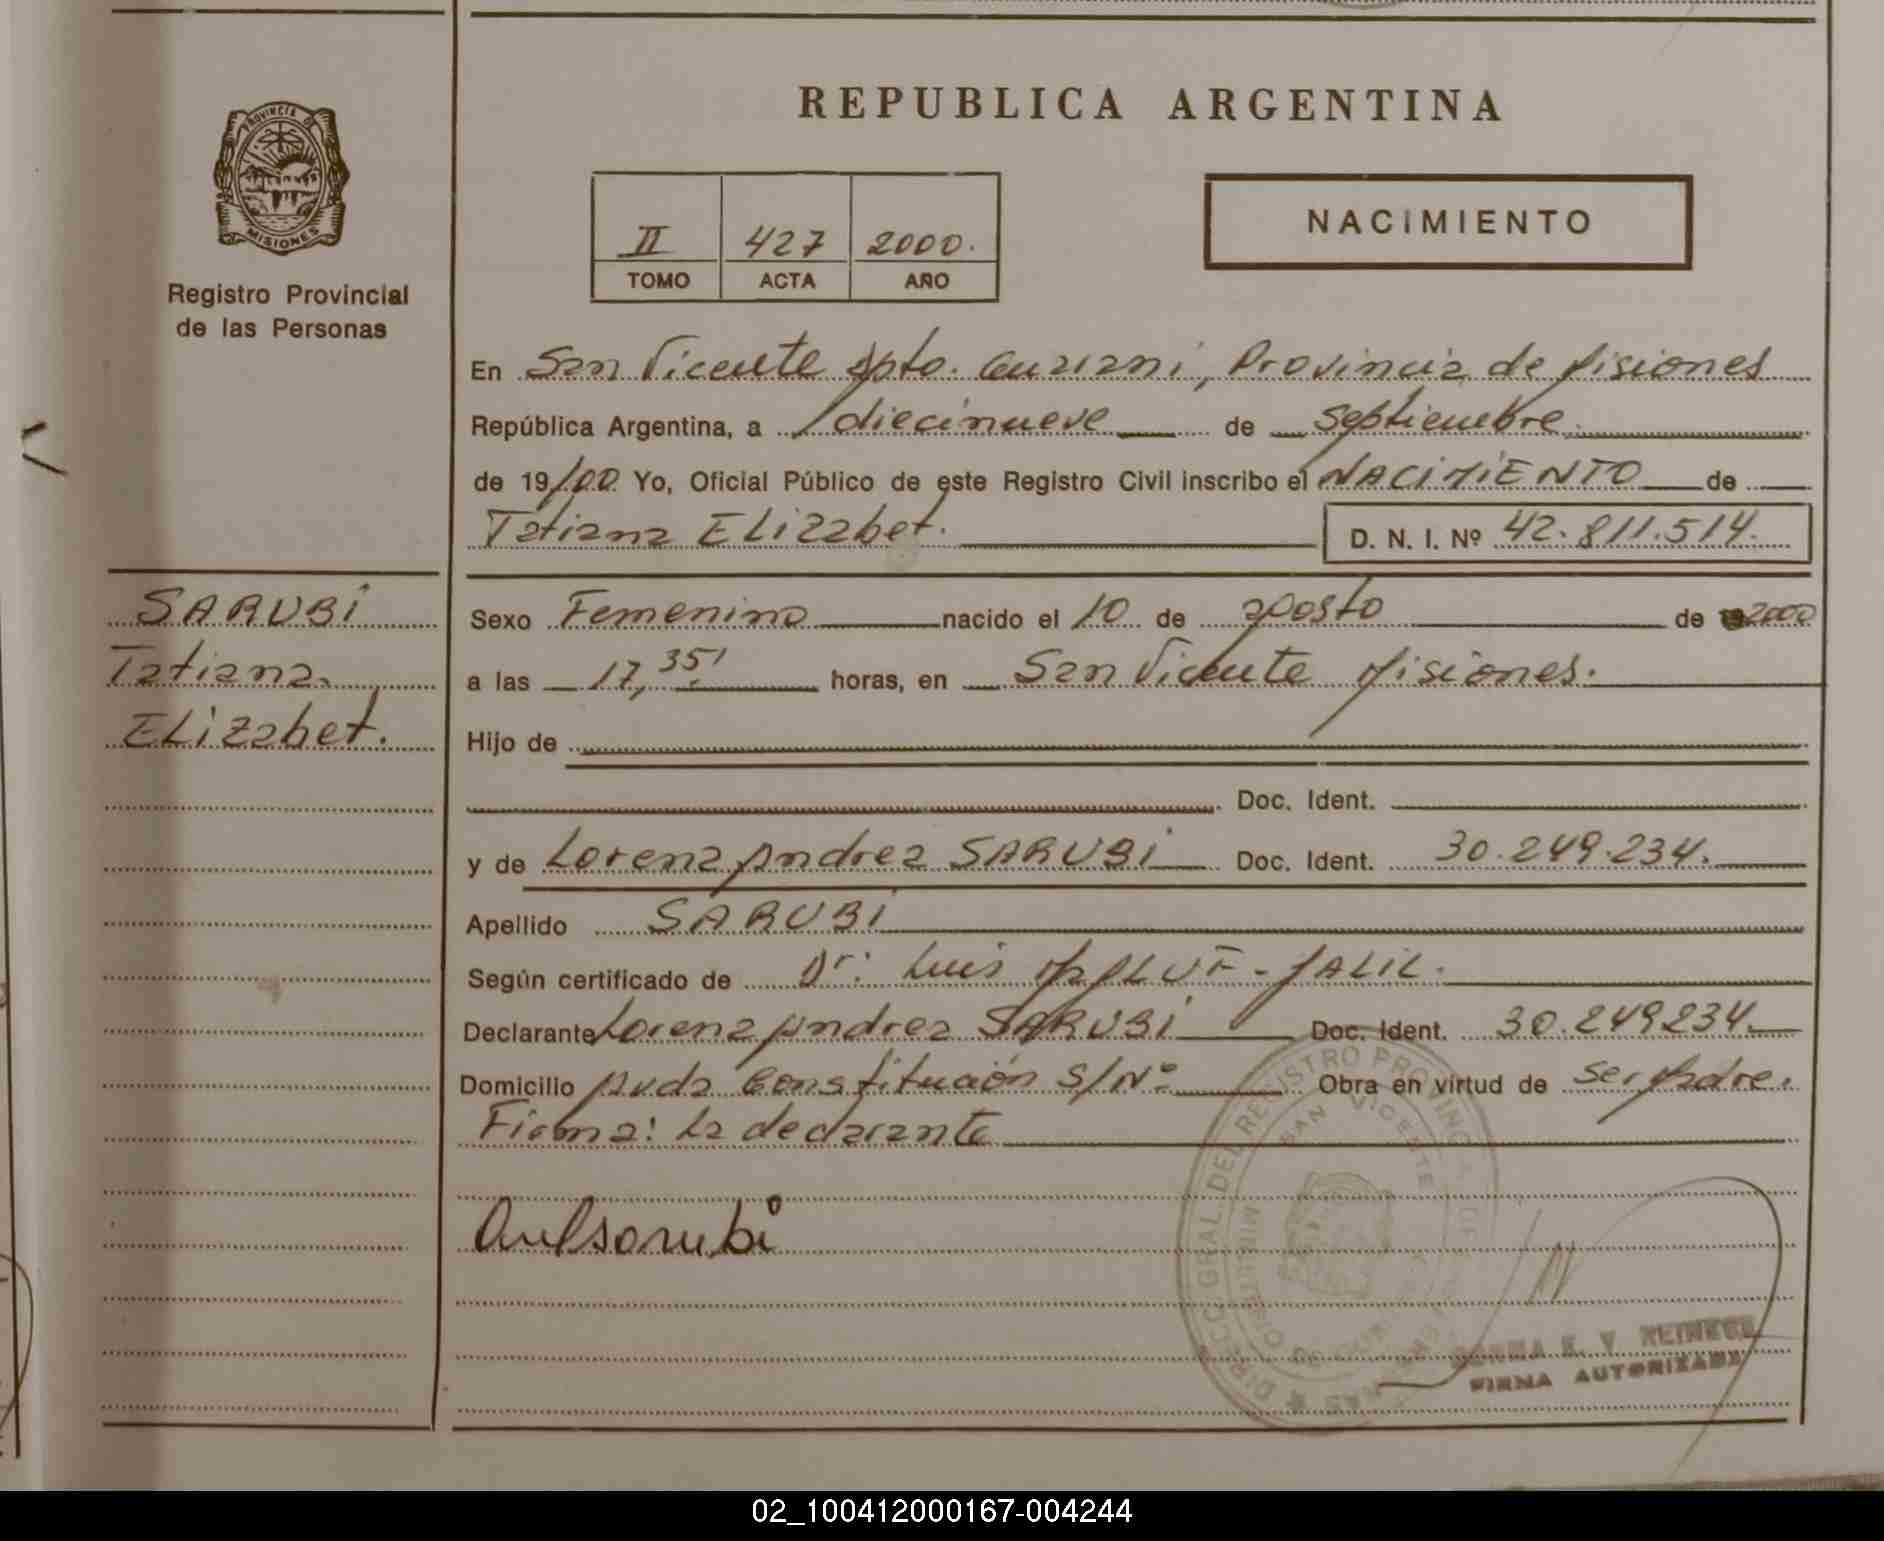 REPUBLICA ARGENTINA
PROVINCIA DE
MISIONES
Registro Provincial
de las Personas
II 427 2000.
TOMO ACTA AÑO
NACIMIENTO
En San Vicente Dpto. Guarani, Provincia de Misiones
República Argentina, a diecinueve de septiembre
de 19/00 Yo, Oficial Público de este Registro Civil inscribo el NACIMIENTO de
Tatiana ELizabet. D. N. I. Nº 42.811.514.
SARUBI
Tatiana
ELizabet.
Sexo Femenino nacido el 10 de agosto de 2000
a las 17,35' horas, en San Vicente Misiones.
Hijo de
Doc. Ident.
y de Lorena Andrea SARUBI Doc. Ident. 30.249.234.
Apellido SARUBI
Según certificado de Dr: Luis JALIL.
Declarante Lorena Andrea SARUBI Doc. Ident. 30.249234.
Domicilio Avda Constitución S/Nº Obra en virtud de ser Madre.
Firma: La declarante
DIRECC. GRAL. DEL REGISTRO PROVINCIAL DE LAS PERSONAS
SAN VICENTE
MINISTERIO DE GOBIERNO
E. V. REINEKE
FIRMA AUTORIZADA
02_100412000167-004244